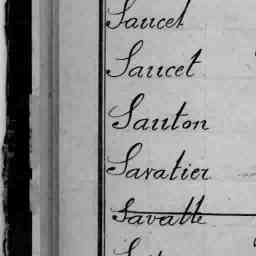 Saucet
Saucet
Sauton
Savatier
Savatte